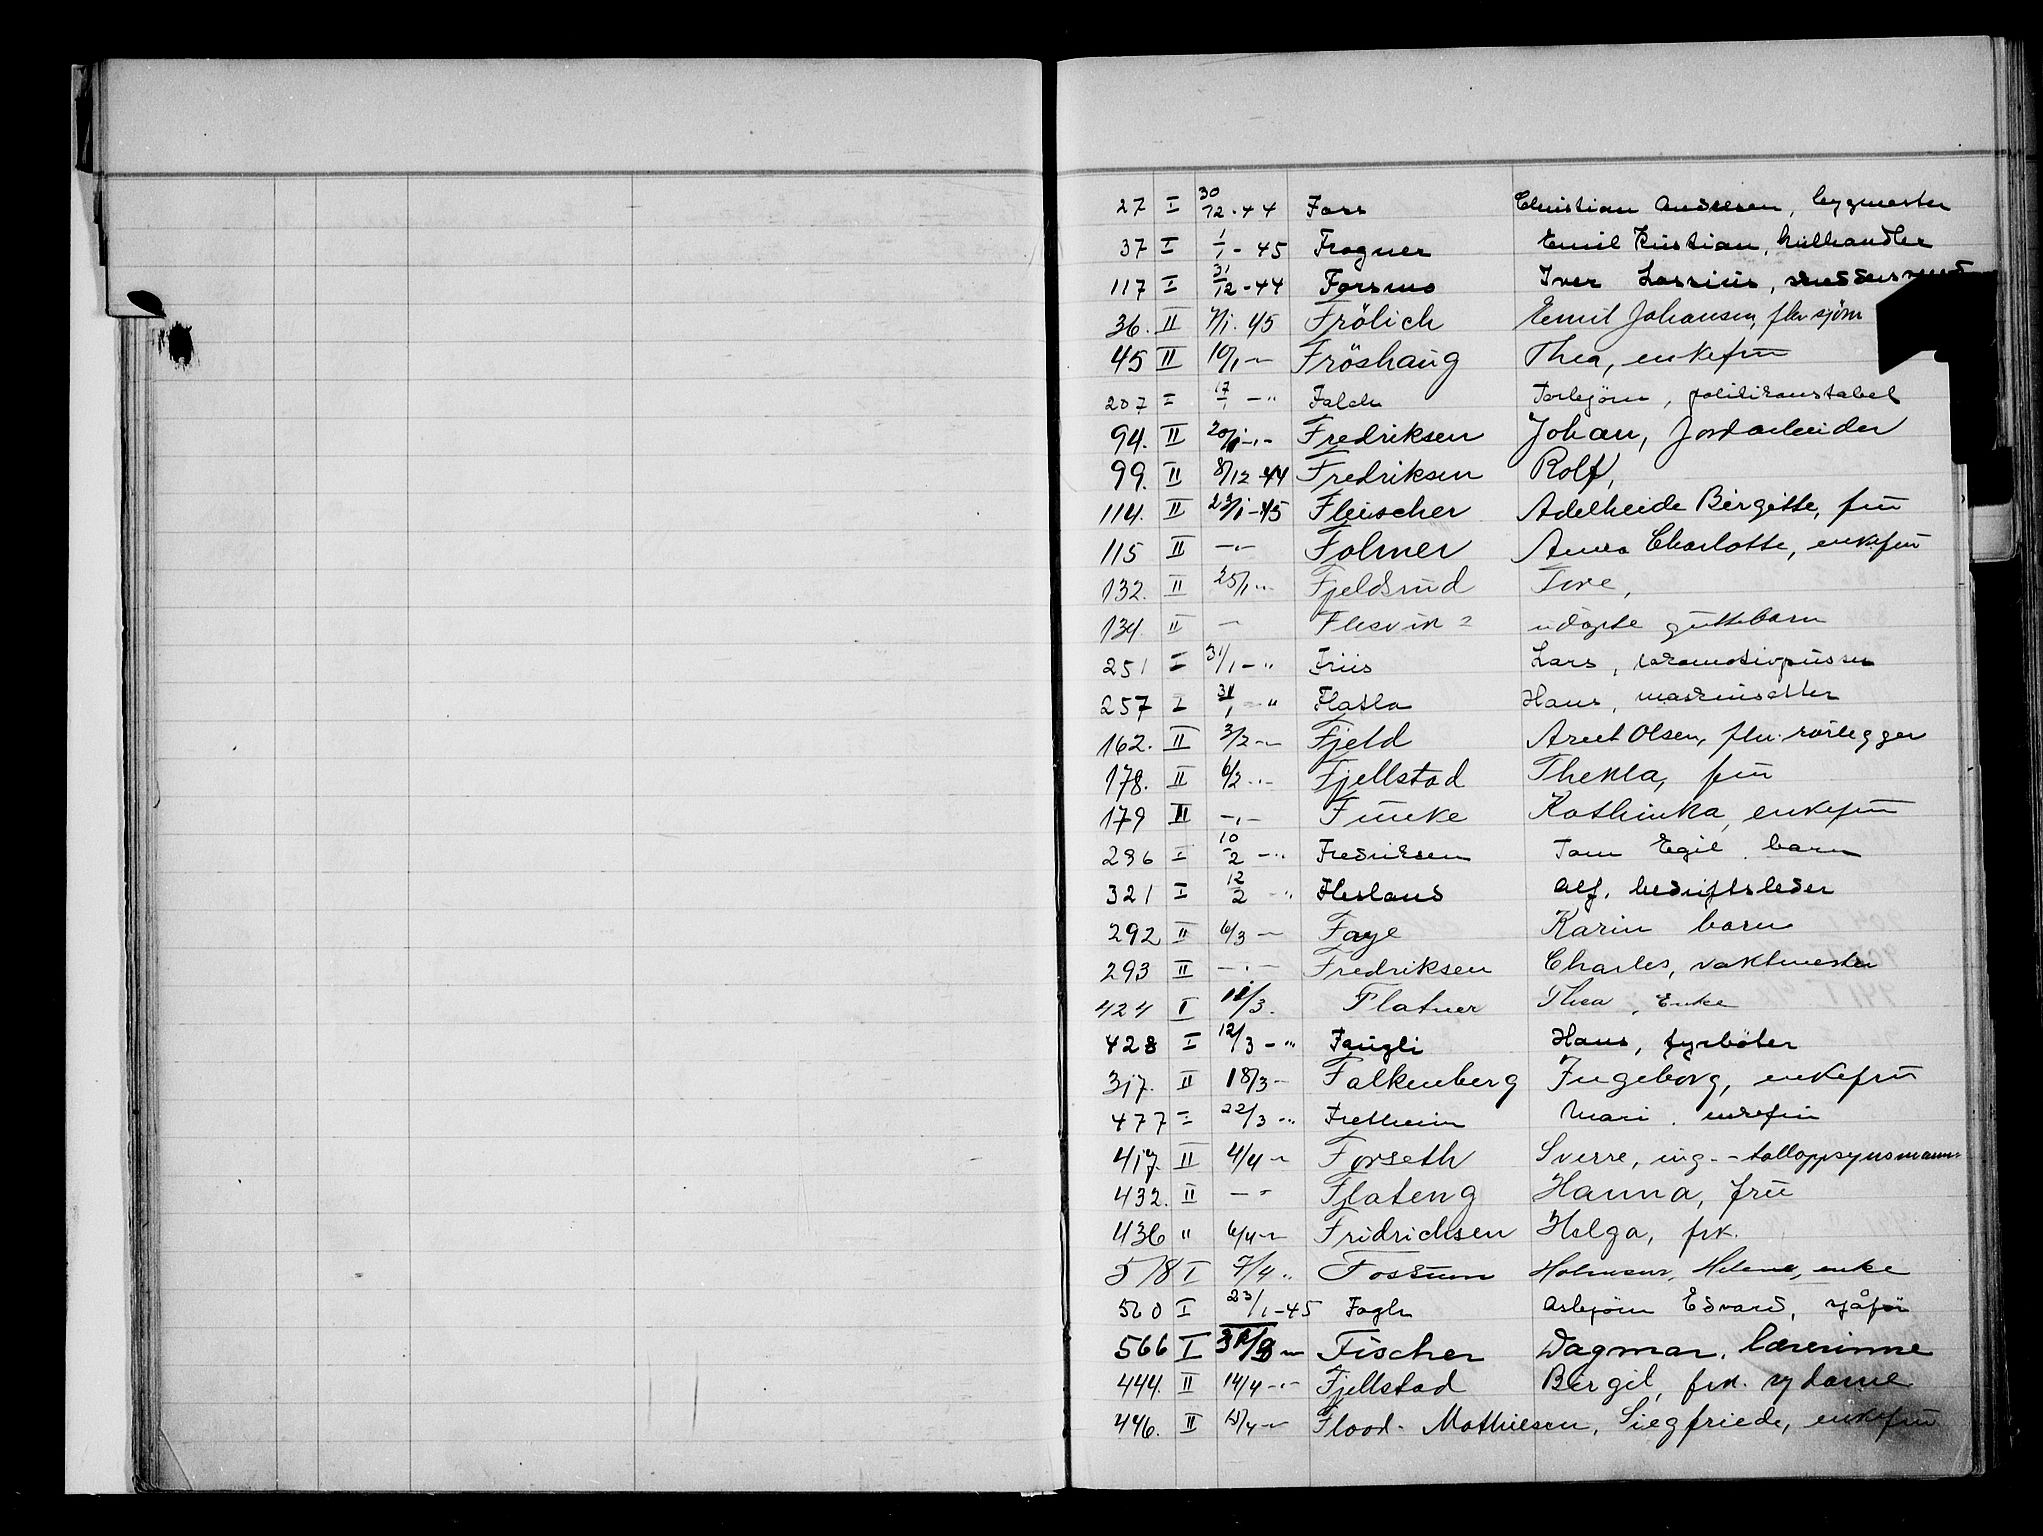 27 I 30/12-44 Foss Christian Andresen, bygmester
37 I 1/1-45 Frogner Emil Kristian, kulhandler
117 I 31/12-44 Forsmo Iver Lassius,
36. II 7/1. 45 Frölich Emil Johansen, fhv sjøm
45 II 10/1 -"- Fröshaug Thea, enkefru
207 I 17/1 -" Falch Torbjørn, politikonstabel
94. II 20/1 -"- Fredriksen Johan, Jordarbeider
99. II 8/12-44 Fredriksen Rolf,
114. II 23/1-45 Fleischer Adelheide Birgitte, fru
115 II -"- Folmer Anna Charlotte, enkefru
132. II 25/1 -"- Fjeldsrud Tove,
134 II - Flesvik ? udøpte guttebarn
251 I 31/1 -" Friis Lars, lokomotivpusser
257 I 31/1 -" Flatla Hans, maskinsetter
162. II 3/2 -"- Fjeld Aret Olsen, fhv. rörlegger
178. II 6/2 -"- Fjellstad Thekla, fru
179 II -"- Funke Kathinka, enkefru
296 I 10/2 -" Fredriksen Tom Egil, barn
321 I 12/2 -" Flesland Alf, bedriftsleder
292 II 6/3 - Faye Karin barn
293 II -"- Fredriksen Charles, vaktmester
424 I 11/3. Flatner Thea, Enke
428 I 12/3 -" Faugli Hans, fyrbøter
317. II 18/3 - Falkenberg Ingeborg, enkefru
477 I 22/3 -" Fretheim Mari, enkefru
417. II 4/4 - Forseth Sverre, ing. - tolloppsynsmann
432. II -"- Flateng Hanna, frü
436 " 6/4 -"- Fridrichsen Helga, frk.
518 I 7/4 " Fossum Helene, enke
520 I 23/1-45 Fagli Asbjørn Edvard, sjåfør
566 I Fischer Dagmar, lærerinne
444. II 14/4 -"- Fjellstad Bergit, frk. sydame
446. II 15/4 -"- Flood-Mathiesen, Siegfriede, enkefru